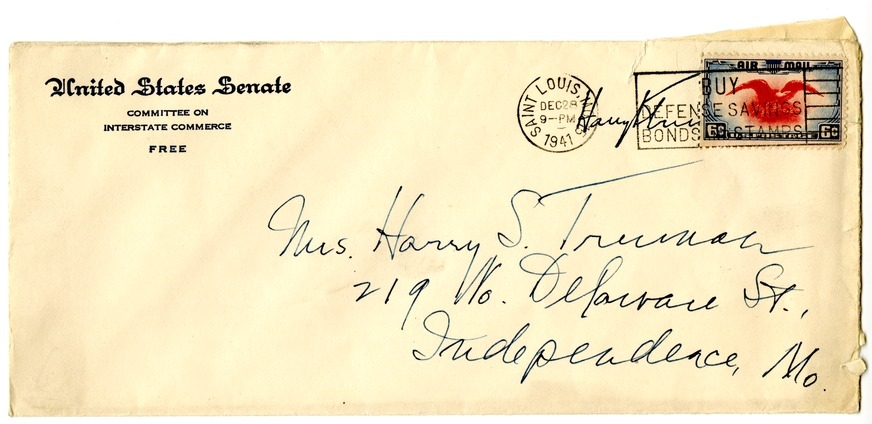 United States Senate
COMMITTEE ON
INTERSTATE COMMERCE
FREE
SAINT LOUIS, MO.
DEC 28
9-PM
1941
BUY
DEFENSE SAVINGS
BONDS STAMPS
AIR MAIL
6¢ 6¢
Mrs. Harry S. Truman
219 No. Delaware St.,
Independence, Mo.